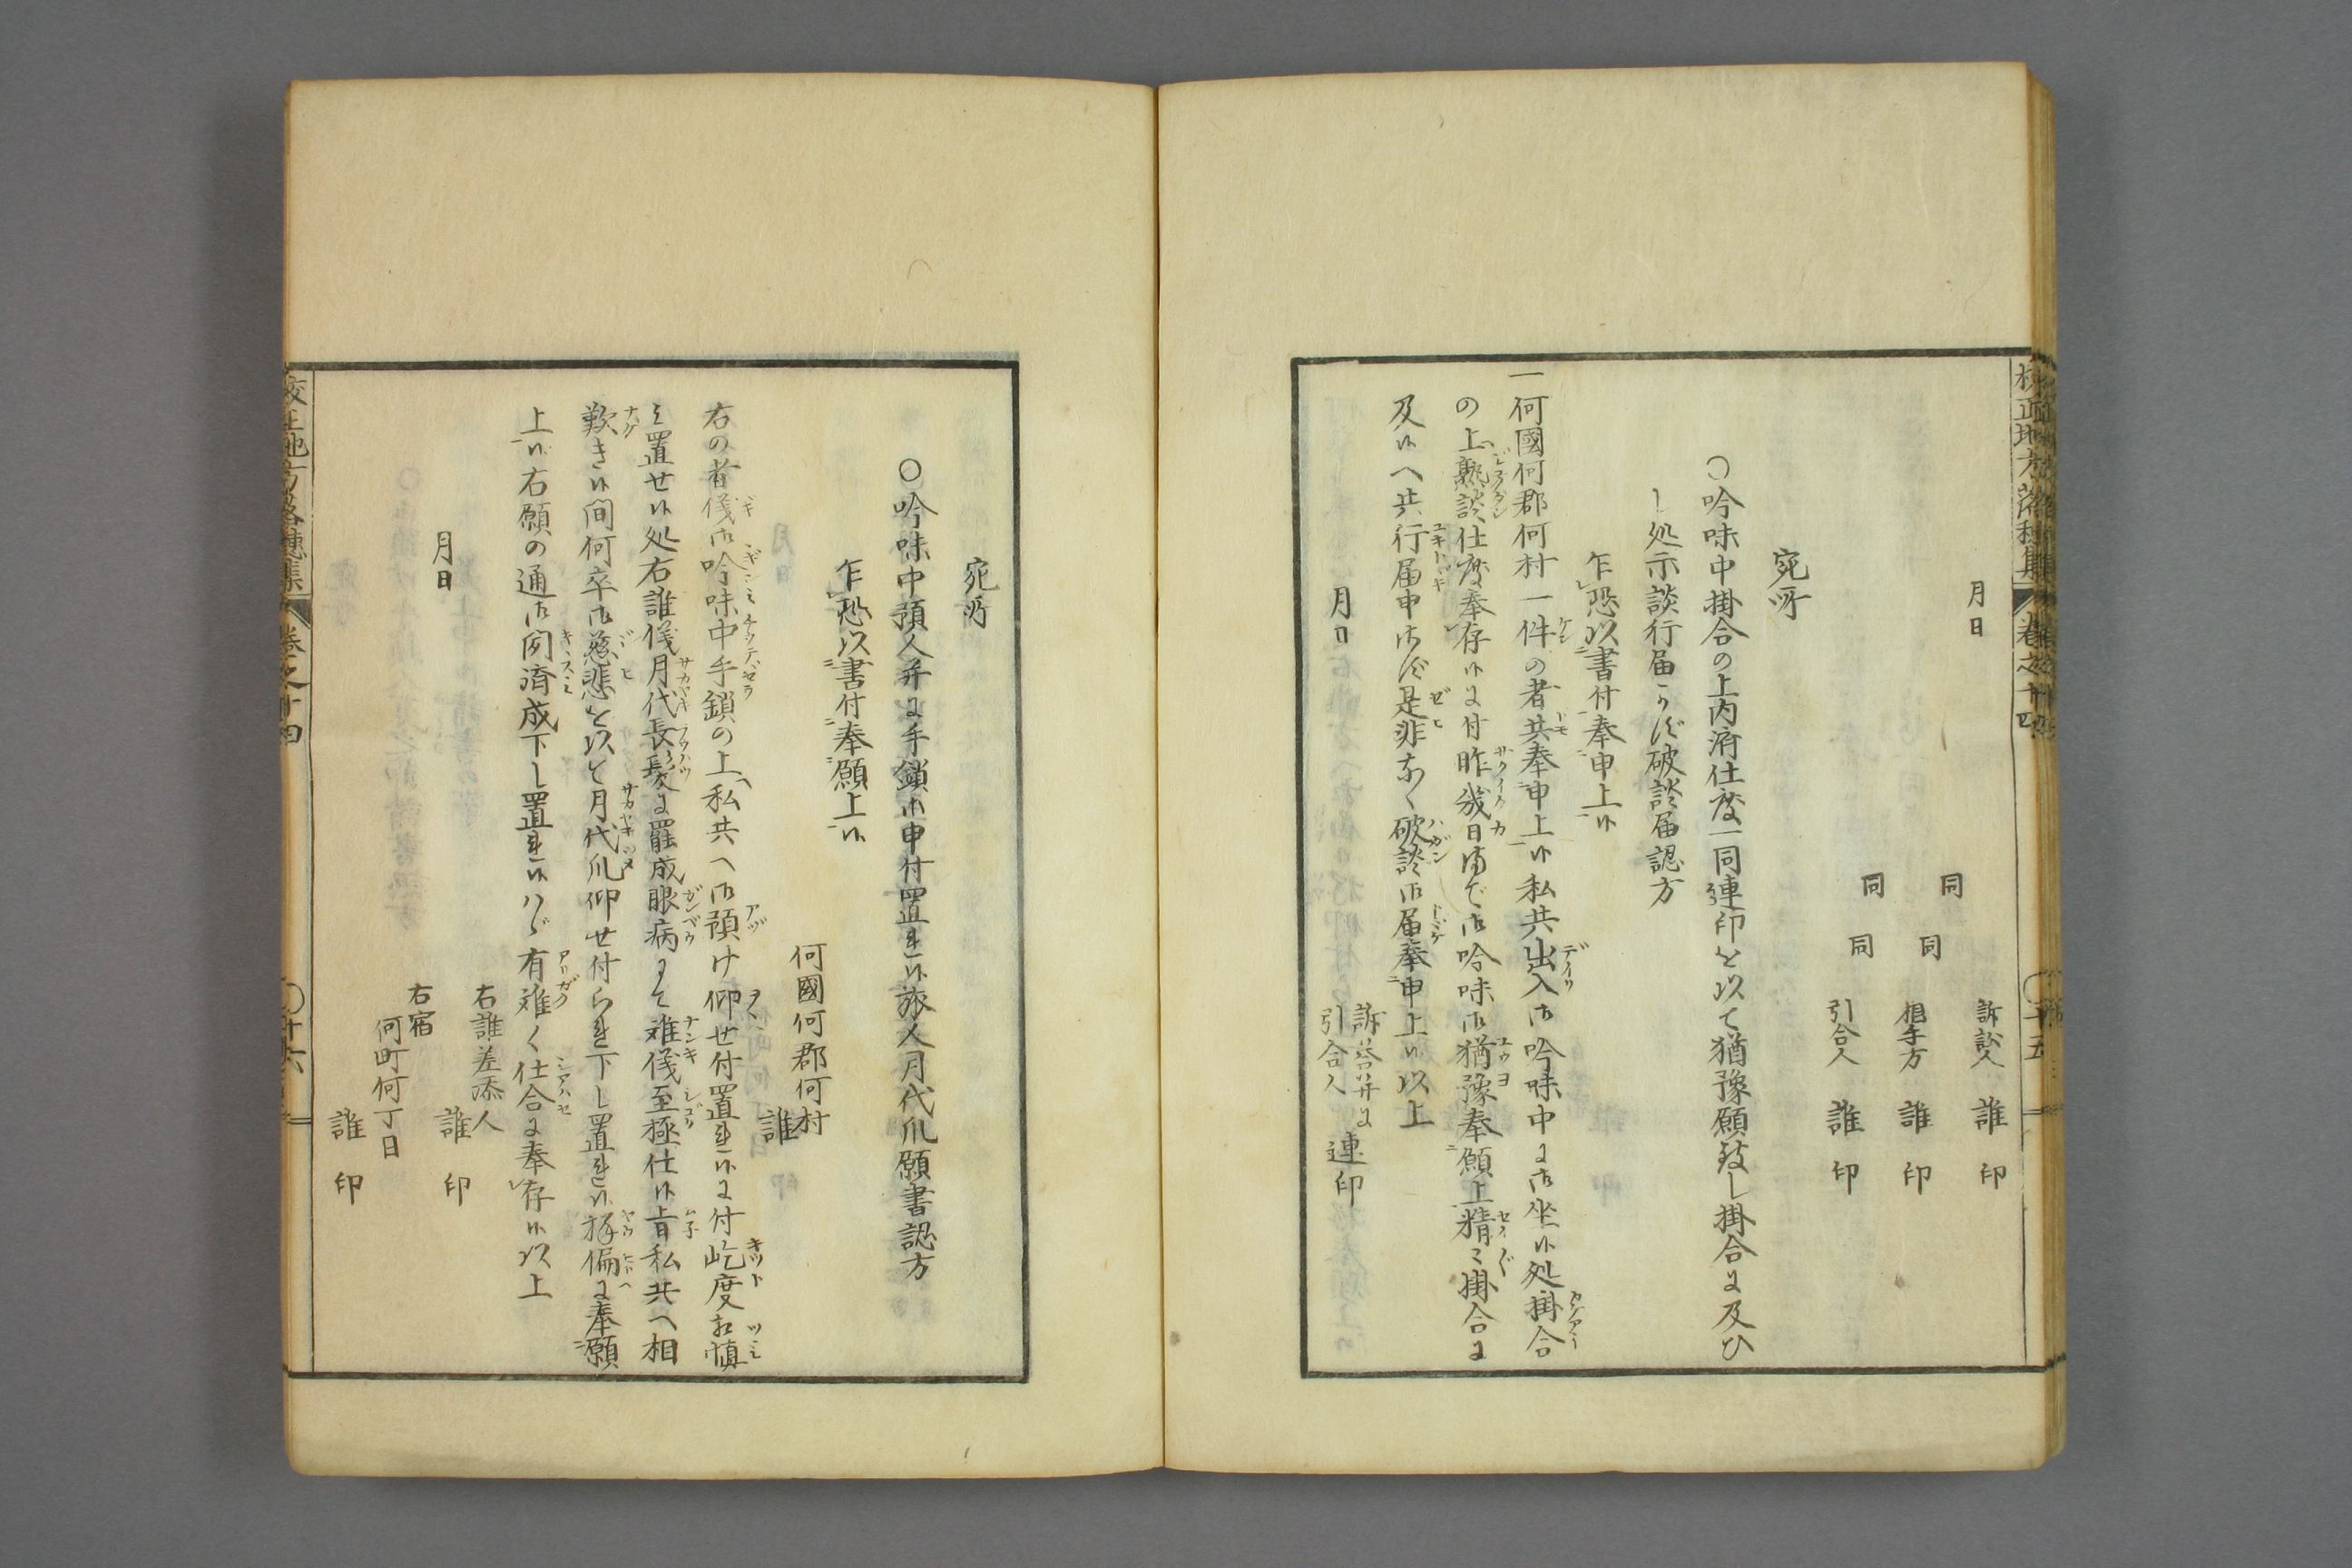 校正地方落穂集 巻之十四 〇十五
月日
訴訟人 誰 印
同 同
相手方 誰 印
同 同
引合人 誰 印
宛所
〇吟味中掛合の上内済仕度一同連印を以て猶豫願致し掛合に及ひ
し処示談行届かず破談届認方
乍恐以書付奉申上候
一何國何郡何村一件の者共奉申上候私共出入御吟味中に御坐候処掛合
の上熟談仕度奉存候に付昨幾日迄御吟味御猶豫奉願上精〻掛合に
及候へ共行届申さず是非なく破談御届奉申上候以上
月日
訴答并に
引合人 連印
宛所
〇吟味中預人并に手鎖御申付置れ候旅人月代爪願書認方
乍恐以書付奉願上候
何國何郡何村
誰
右の者儀御吟味中手鎖の上私共へ御預け仰せ付置れ候に付屹度相愼
み置せ候処右誰儀月代長髪に罷成眼病にて難儀至極仕候旨私共へ相
歎き候間何卒御慈悲を以を月代爪仰せ付られ下し置れ候様偏に奉願
上候右願の通御聞済成下し置れ候ハヾ有難く仕合に奉存候以上
月日
右誰差添人
誰 印
右宿
何町何丁目
誰 印
校正地方落穂集 巻之十四 〇十六